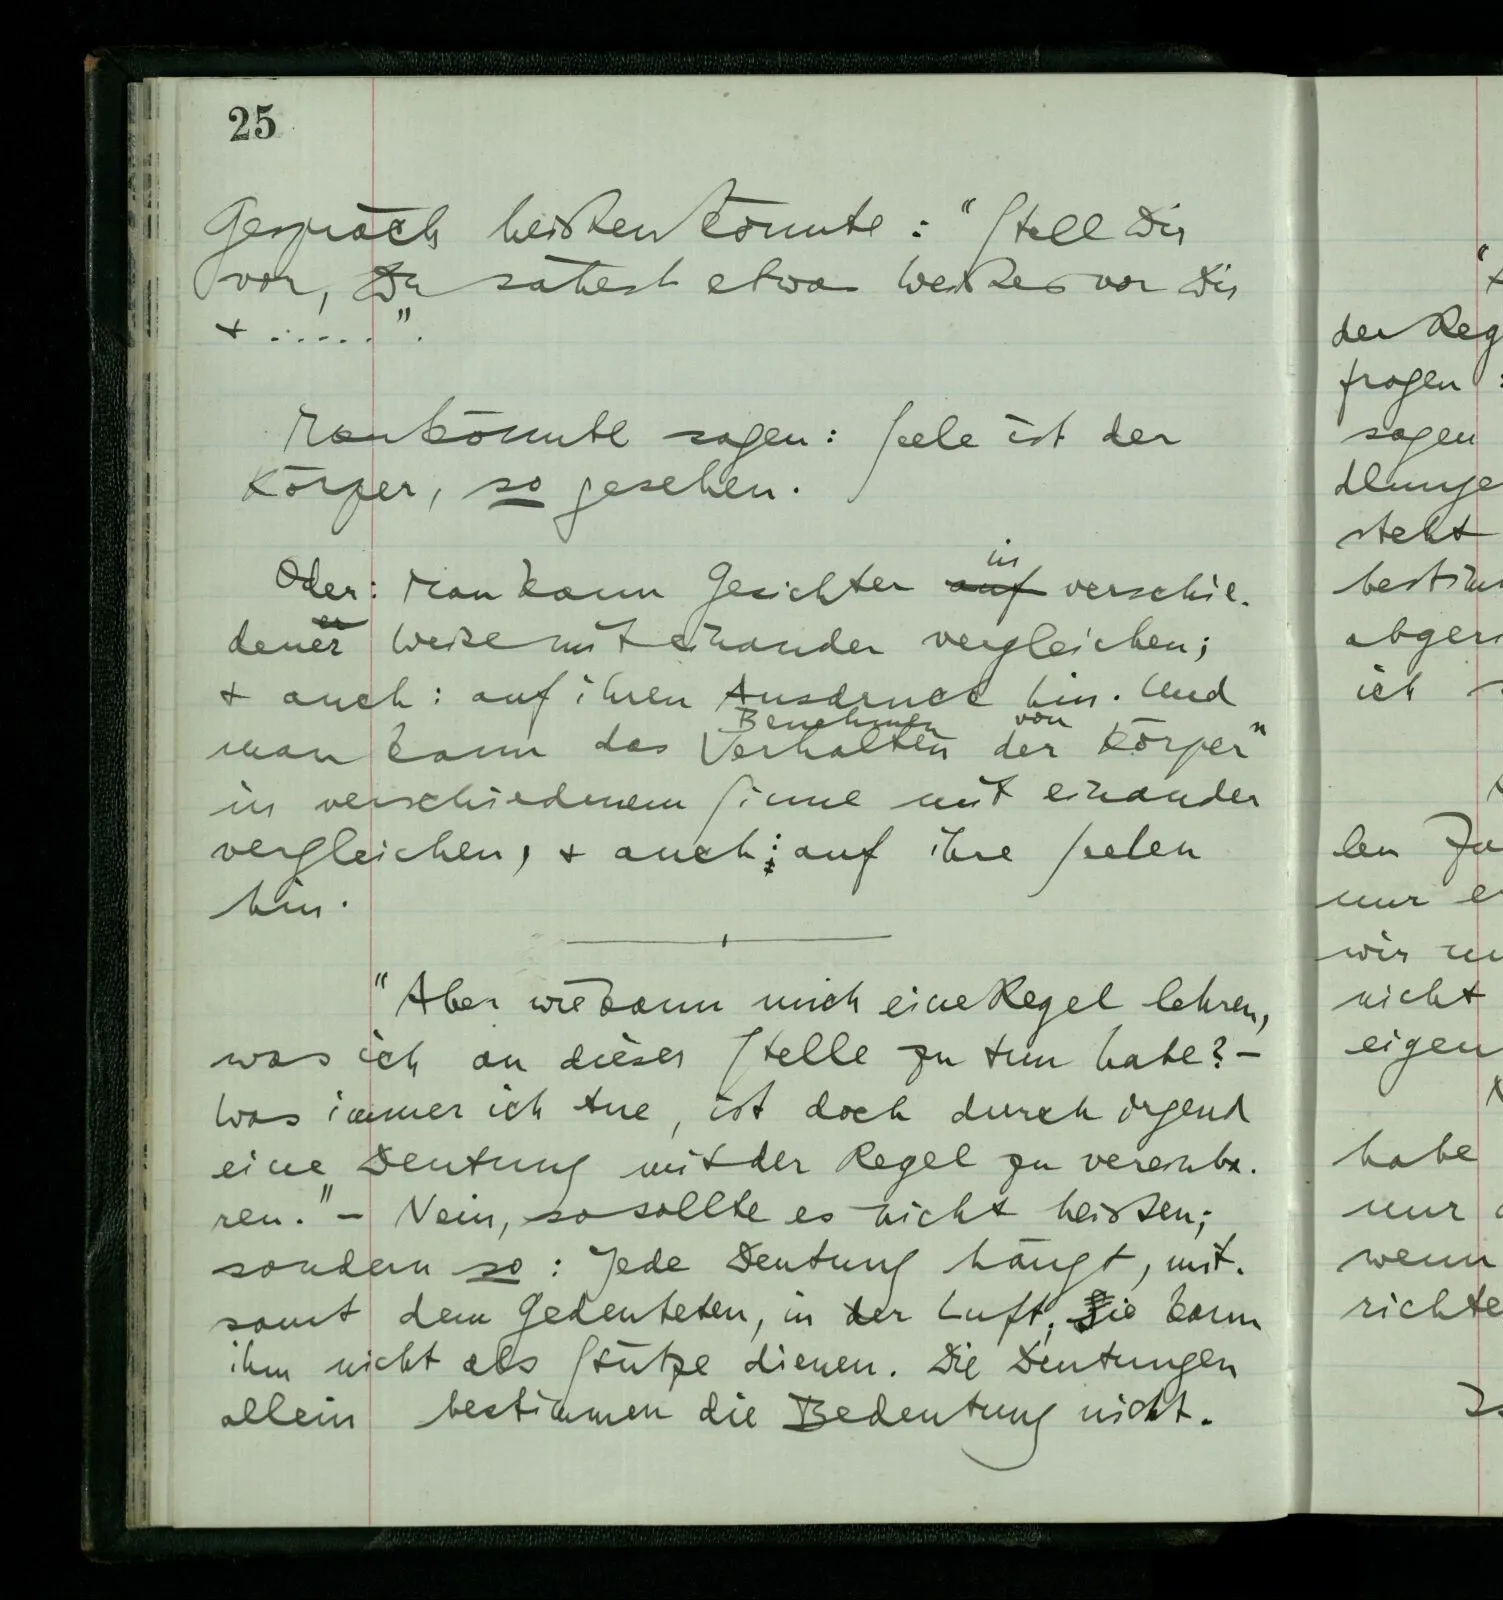 25
Gespräch heißen könnte: "Stell Dir
vor, Du sähest etwas weißes vor Dir
+ ......".
Man könnte sagen: Seele ist der
Körper, so gesehen.
in
Oder: Man kann Gesichter auf verschie-
er
dener Weise mit einander vergleichen;
+ auch: auf ihren Ausdruck hin. Und
Benehmen von
man kann das Verhalten der Körper"
in verschiedenem Sinne mit einander
vergleichen, + auch: auf ihre Seelen
hin.
"Aber wie kann mich eine Regel lehren,
was ich an dieser Stelle zu tun habe? –
Was immer ich tue, ist doch durch irgend
eine Deutung mit der Regel zu vereinba-
ren." – Nein, so sollte es nicht heißen;
sondern so: Jede Deutung hängt, mit-
samt dem Gedeuteten, in der Luft; sie kann
ihm nicht als Stütze dienen. Die Deutungen
allein bestimmen die Bedeutung nicht.
der Reg
fragen :
sagen
dlunge
steht
bestim
abgeri
ich
len Zu
nur e
wir
nicht
eigen
habe
nur
wenn
richte